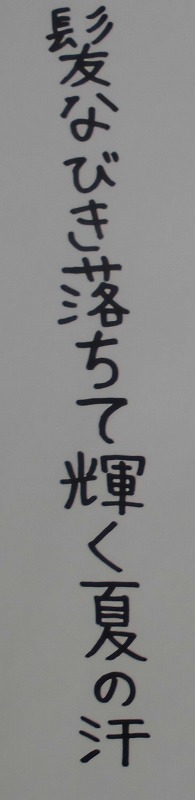 髪なびき落ちて輝く夏の汗